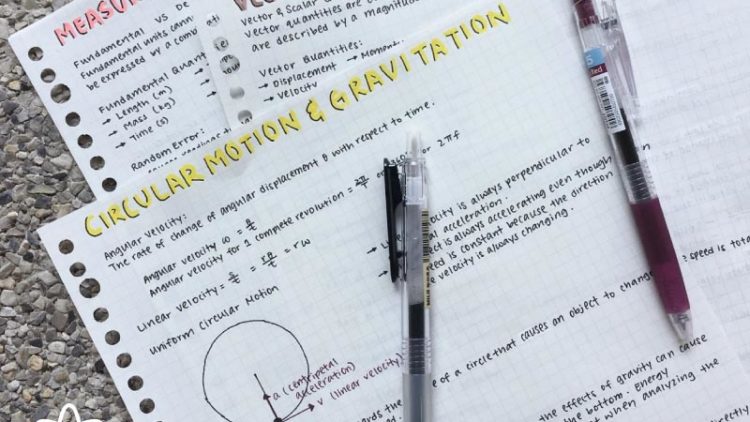 MEASUR
Fundamental vs De
Fundamental units cann
be expressed by a comb
Fundamental Quant
→ Length (m)
→ Mass (kg)
→ Time (s)
Random Error:
Vector & Scalar
Vector quantities are
are described by a magnitud
Vector Quantities:
→ Displacement → Momen
→ Velocity
CIRCULAR MOTION & GRAVITATION
Angular velocity:
The rate of change of angular displacement θ with respect to time.
Angular velocity ω = θ/t
Angular velocity for 1 complete revolution = 2π/t or 360/t or 2πf
Linear velocity = s/t = rθ/t = rω
Uniform Circular Motion
a (centripetal
acceleration)
v (linear velocity)
city is always perpendicular to
al acceleration.
ect is always accelerating even though
eed is constant because the direction
e velocity is always changing.
speed is total
e of a circle that causes an object to change
the effects of gravity can cause
the bottom. Energy
t when analyzing the
directly